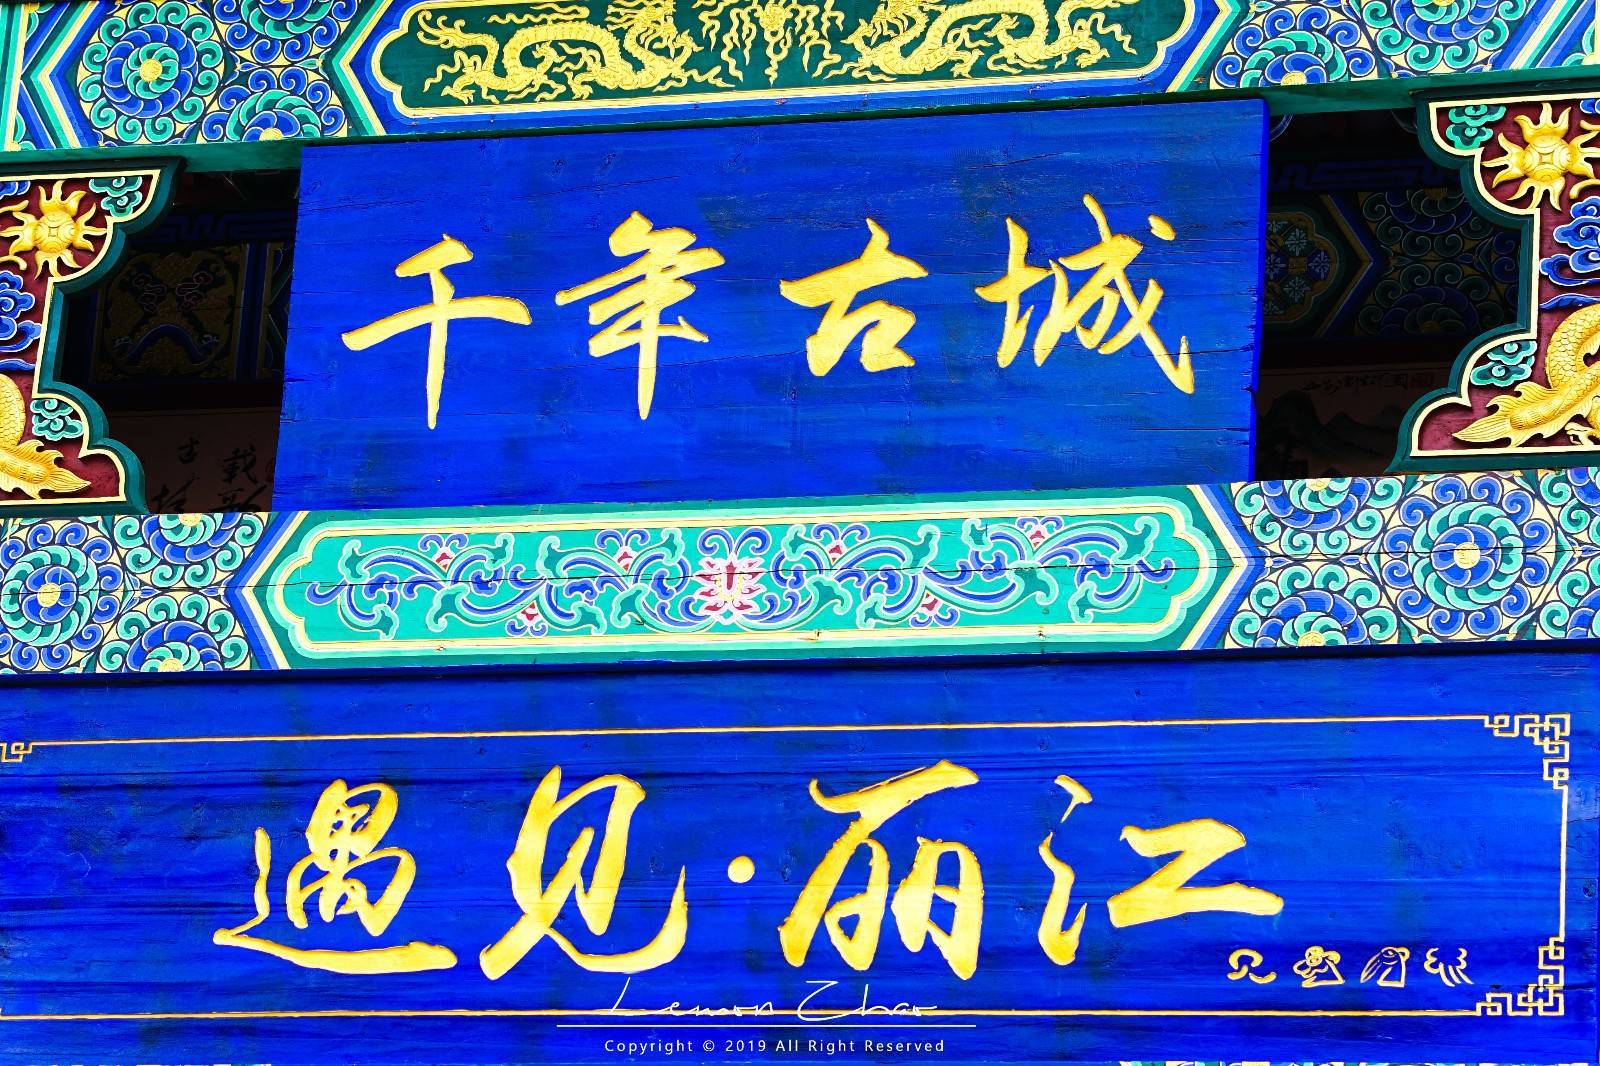 千年古城
遇见·丽江
Lemon Zhao
Copyright © 2019 All Right Reserved